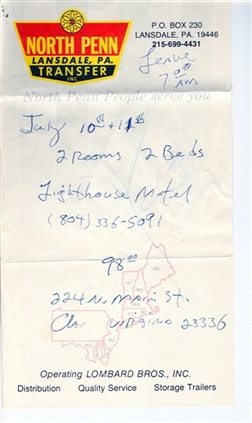 NORTH PENN
LANSDALE, PA.
TRANSFER
INC.
P.O. BOX 230
LANSDALE, PA. 19446
215-699-4431
Leave
7 00
AM
North Penn People serve you
July 10th + 11th
2 rooms 2 Beds
Lighthouse Motel
(804) 336-5091
98 00
224 N. Main St.
Virginia 23336
Operating LOMBARD BROS., INC.
Distribution Quality Service Storage Trailers